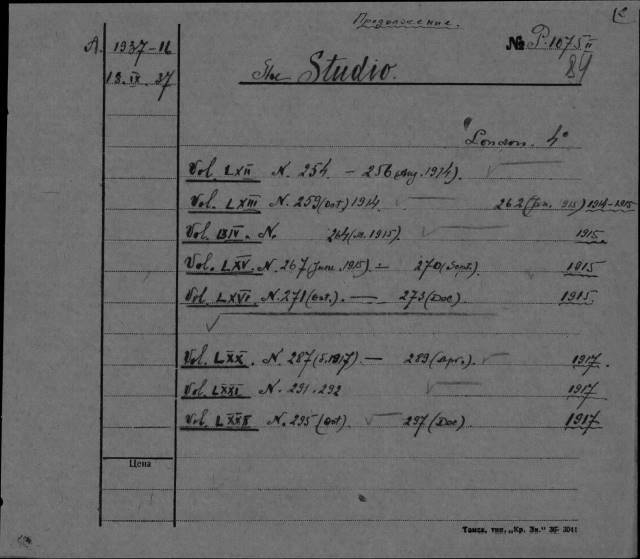 Продолжение.
2
A. 1937-12 № P.1075 II
13.IX.37 The Studio. 84
London. 4°
Vol. LXII N. 254 - 256 (Aug. 1914).
Vol. LXIII N. 259 (Oct) 1914 262 (Jan. 1915) 1914-1915
Vol. N. 264 (1915). 1915.
Vol. LXV. N. 267 (June. 1915) - 270 (Sept.) 1915
Vol. LXVI. N. 271 (Oct.). — 273 (Dec) 1915
Vol. LXX. N. 287 (1917) — 289 (Apr.) 1917.
Vol. LXXI N. 291, 292 1917
Vol. LXXII N. 295 (Oct). 297 (Dec) 1917
Цена
Тамск. тип. „Кр. Зн."